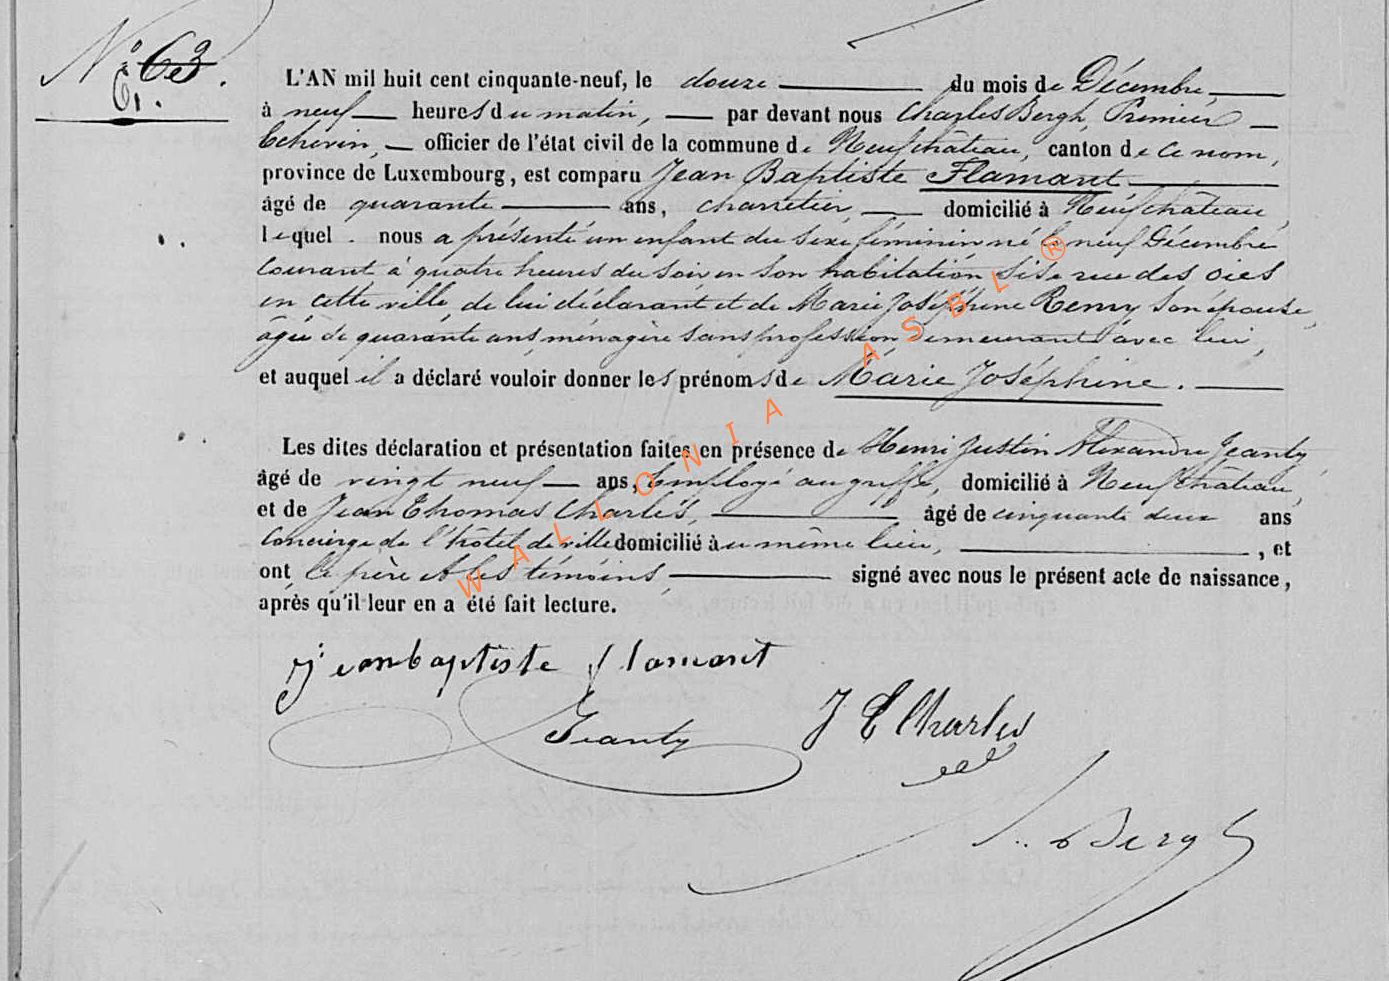 N° 63.
61.
L'AN mil huit cent cinquante-neuf, le douze du mois de Décembre,
à neuf heures du matin, par devant nous Charles Bergh, Premier
Echevin, officier de l'état civil de la commune de Neufchâteau, canton de ce nom,
province de Luxembourg, est comparu Jean Baptiste Flamant
âgé de quarante ans, charretier, domicilié à Neufchâteau,
lequel nous a présenté un enfant du sexe féminin né le neuf Décembre
courant à quatre heures du soir en son habitation sise rue des oies
en cette ville, de lui déclarant et de Marie Joséphine Remy son épouse,
âgée de quarante ans ménagère sans profession demeurant avec lui,
et auquel il a déclaré vouloir donner les prénoms de Marie Joséphine.
Les dites déclaration et présentation faites en présence de Henri Justin Alexandre Jeanty
âgé de vingt neuf ans, Employé au greffe, domicilié à Neufchâteau,
et de Jean Thomas Charles, âgé de cinquante deux ans
Concierge de l'hôtel de ville domicilié au même lieu, , et
ont le père et les témoins signé avec nous le présent acte de naissance,
après qu'il leur en a été fait lecture.
jeanbaptiste flamant
Jeanty
J T Charles
Bergh
WALLONIA ASBL ®